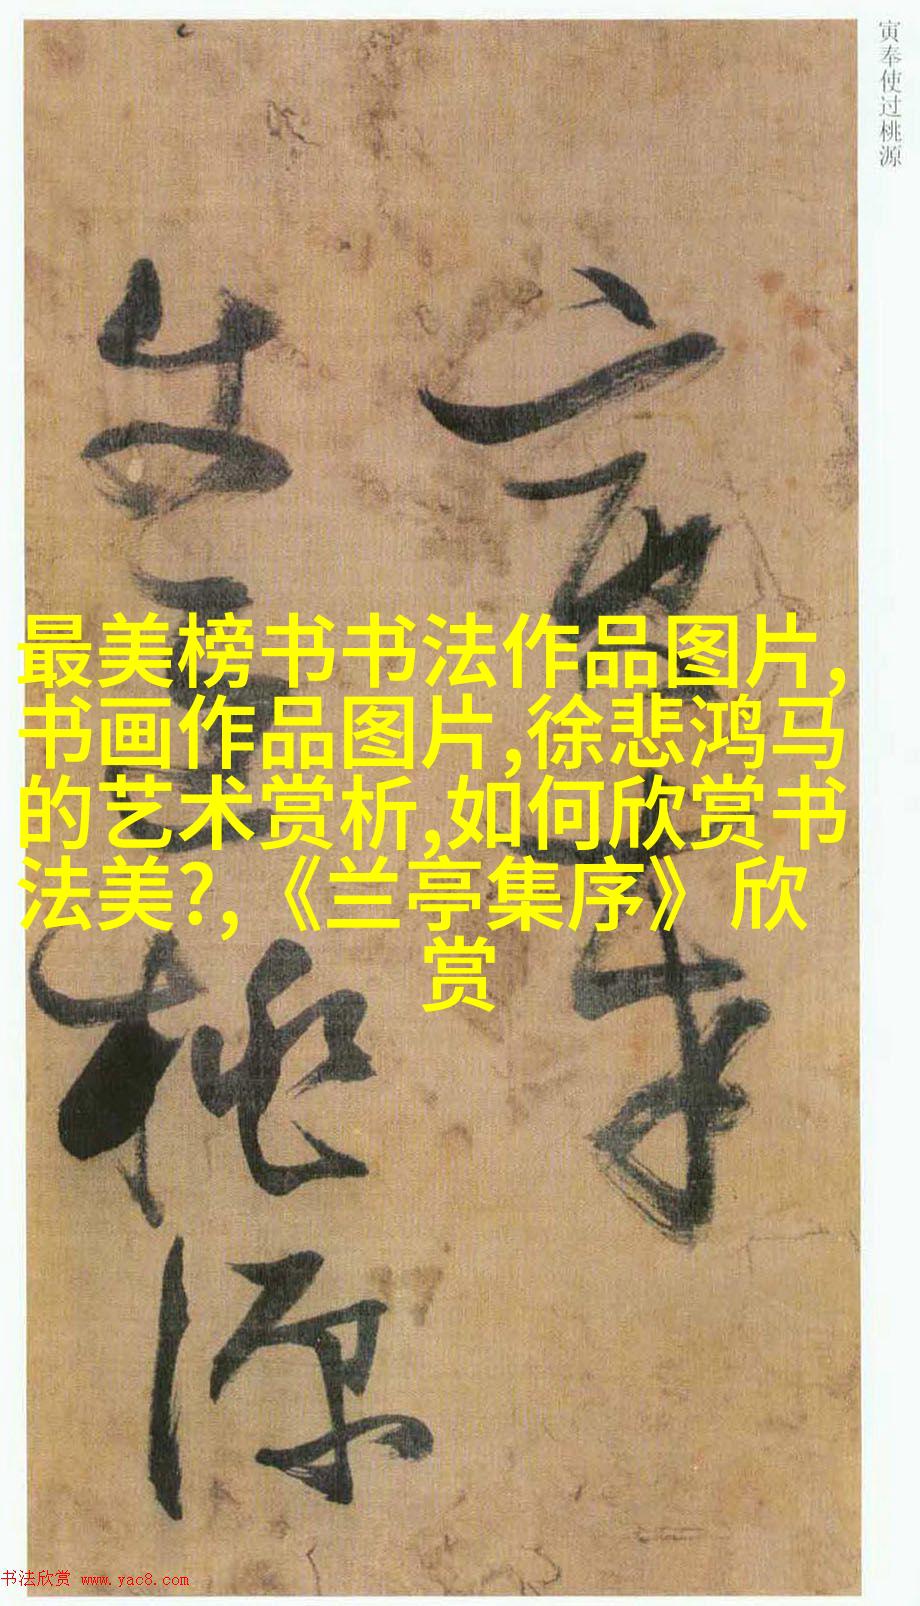 寅奉使过桃源
寅奉
使桃源
最美榜书书法作品图片,
书画作品图片,徐悲鸿马
的艺术赏析,如何欣赏书
法美?,《兰亭集序》欣
赏
书法欣赏 www.yac8.com